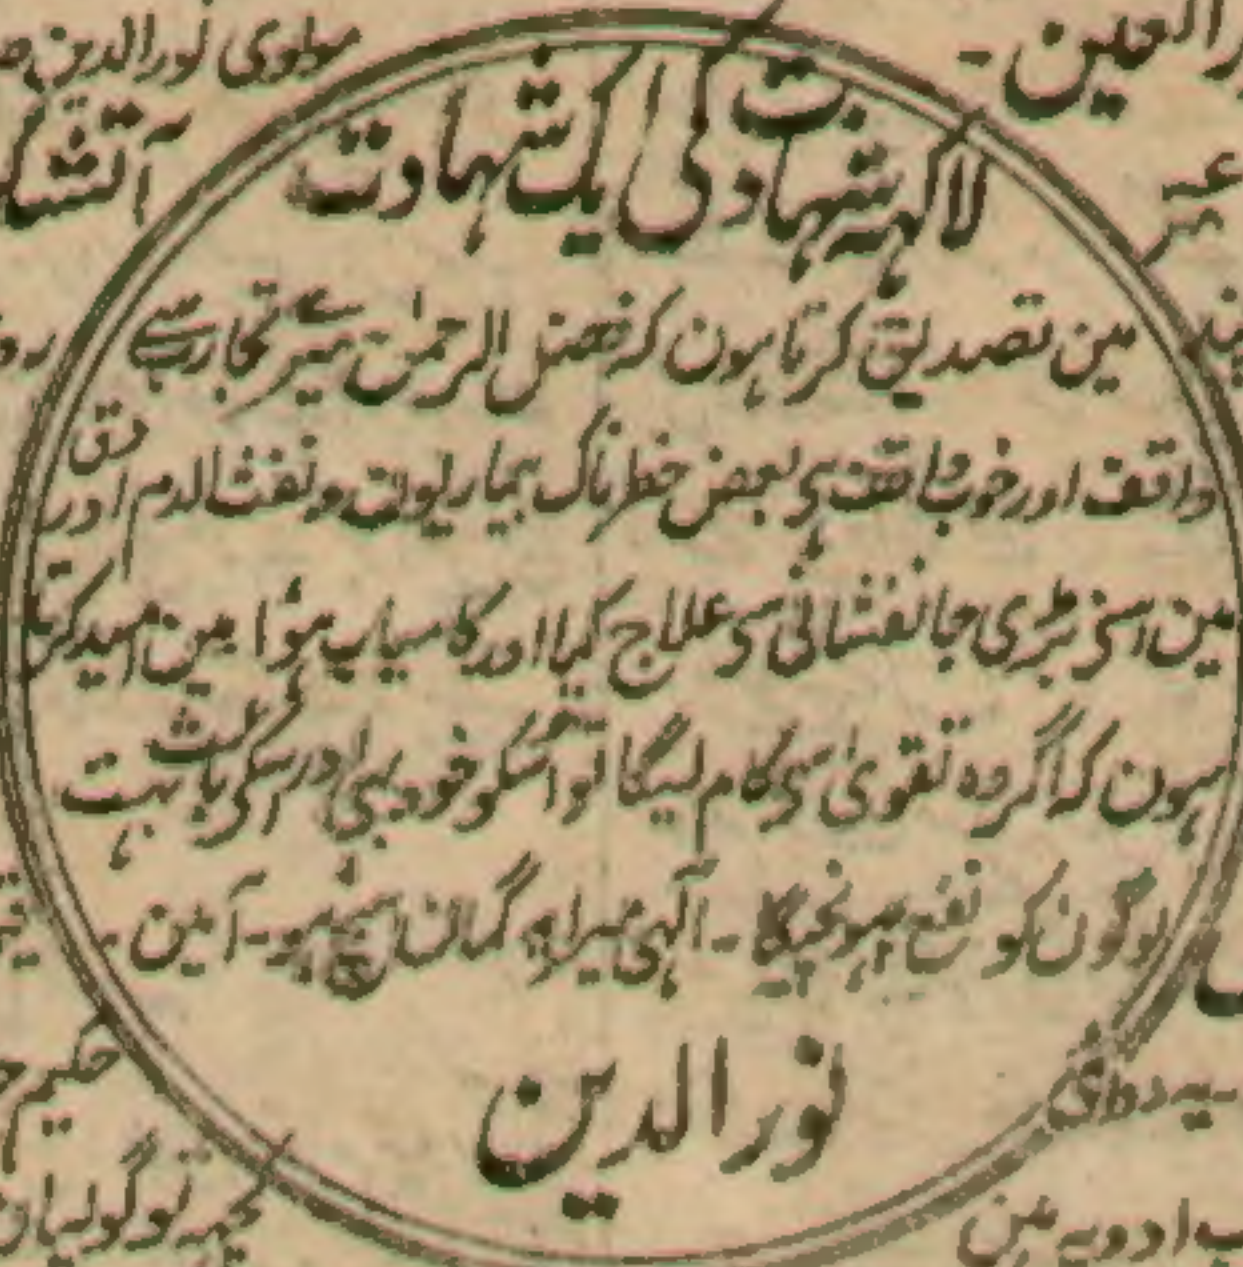 رالعین -
مولوی نورالدین
لاکہہ شہادت کی ایک شہادت
مین تصدیق کرتا ہون کہ فضل الرحمٰن میرے تجارب سے
واقف اور خوب واقف ہی بعض خطرناک بیماریون نفث الدم اور دق
مین اسنی بڑی جانفشانی سی علاج کیا اور کامیاب ہؤا مین امید کرتا
ہون کہ اگر وہ تقویٰ سی کام لیگا تو اسکو خود بہی اور اسکی باعث بہت
لوگون کو نفع پہونچیگا - الٰہی میرا یہ گمان صحیح ہو - آمین -
نورالدین
حکیم
ادویہ مین